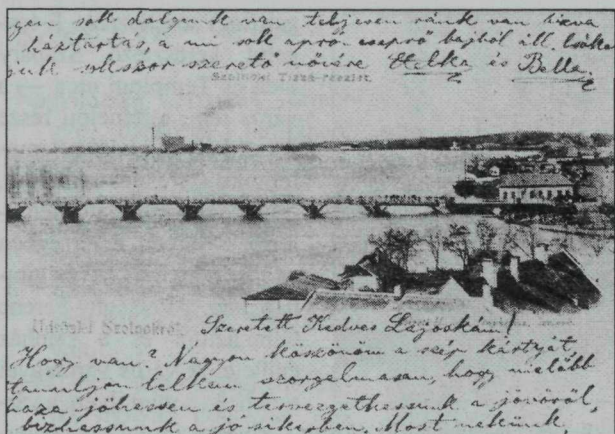 gen sok dolgunk van teljesen ránk van bizva
háztartás, a mi sok apró-cseprő bajból áll. Csóko
juk sokszor szerető nővére Etelka és Bella.
Szolnoki Tisza-részlet.
Üdvözlet Szolnokról.
Szeretett Kedves Lajoskám!
Hogy van? Nagyon köszönöm a szép kártyát,
tanuljon lelkem szorgalmasan, hogy mielőbb
haza jöhessen és tervezgethessünk a jövőről,
bizhassunk a jó sikerben. Most nekünk,